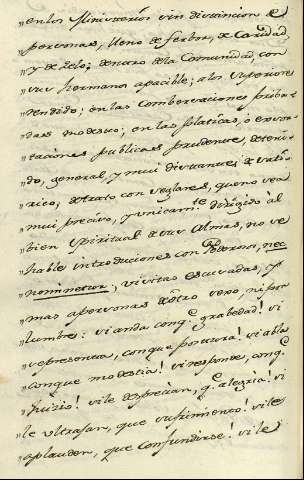 "en los Ministerios sin distincion de
"personas, lleno de ferbor, de Caridad,
"y de Zelo; dentro de la Comunidad, con
"sus hermanos apacible; a los superiores
"rendido; en las Combersaciones priba-
"das modesto; en las platicas, o exor-
"taciones publicas prudente, deteni-
"do, general, y mui distante de sati-
"rico; de trato con seglares, que no sea
"mui preciso, y unicam.te dirigido àl
"bien spiritual de sus Almas, no se
"hable introduciones con Poderosi, nec
"nominetur; visitas escusadas, y
"mas a personas de òtro sexo, ni por
"lumbre: si anda con q.e grabedad! si
"se presenta, con que postura! si abla
"con que modestia! si responde, con q.e
"juizio! si le desprecian, q.e alegria! si
"le ultrajan, que sufrimiento! si le
"aplauden, que confundirse! si le